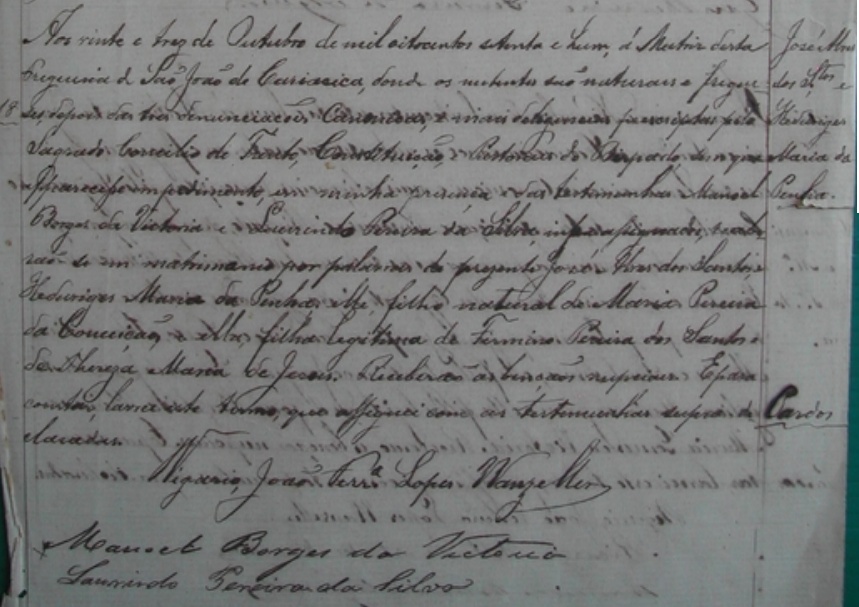 Aos vinte e trez de Outubro de mil oitocentos setenta e hum, á Matriz desta
Freguezia de São João de Cariacica, donde os nubentes são naturaes e fregue
zes, depois das tres denunciações Canonicas, e mais deligencias prescriptas pelo
Sagrado Concilio de Trento, Constituição, e Pastoraes do Bispado, sem que
apparecesse impedimento, em minha presença e das testemunhas Manoel
Borges da Victoria e Laurindo Pereira da Silva, infra assignados, recebe
rão-se em matrimonio por palavras de presente José Alves dos Santos e
Heduviges Maria da Penha, elle, filho natural de Maria Pereira
da Conceição, e ella, filha legitima de Firmino Pereira dos Santos e
de Thereza Maria de Jesus. Receberão as bençãos nupciaes. E para
constar, lavrei este termo, que assignei com as testemunhas supra de
claradas.
Vigario, João Ferrª Lopes Wanzeller
Manoel Borges da Victoria
Laurindo Pereira da Silva
18
José Alves
dos Stos e
Heduviges
Maria da
Penha.
Pardos